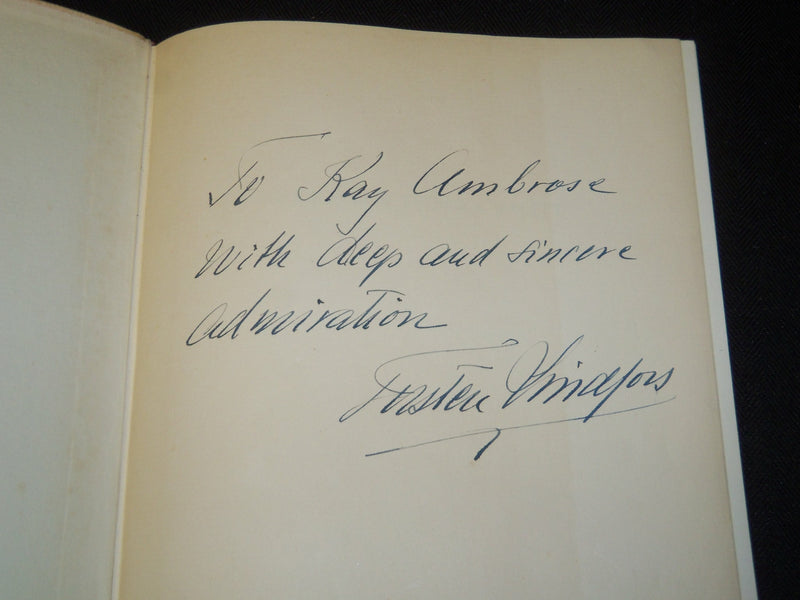 To Kay Ambrose
with deep and sincere
admiration
Torsten Kindfors